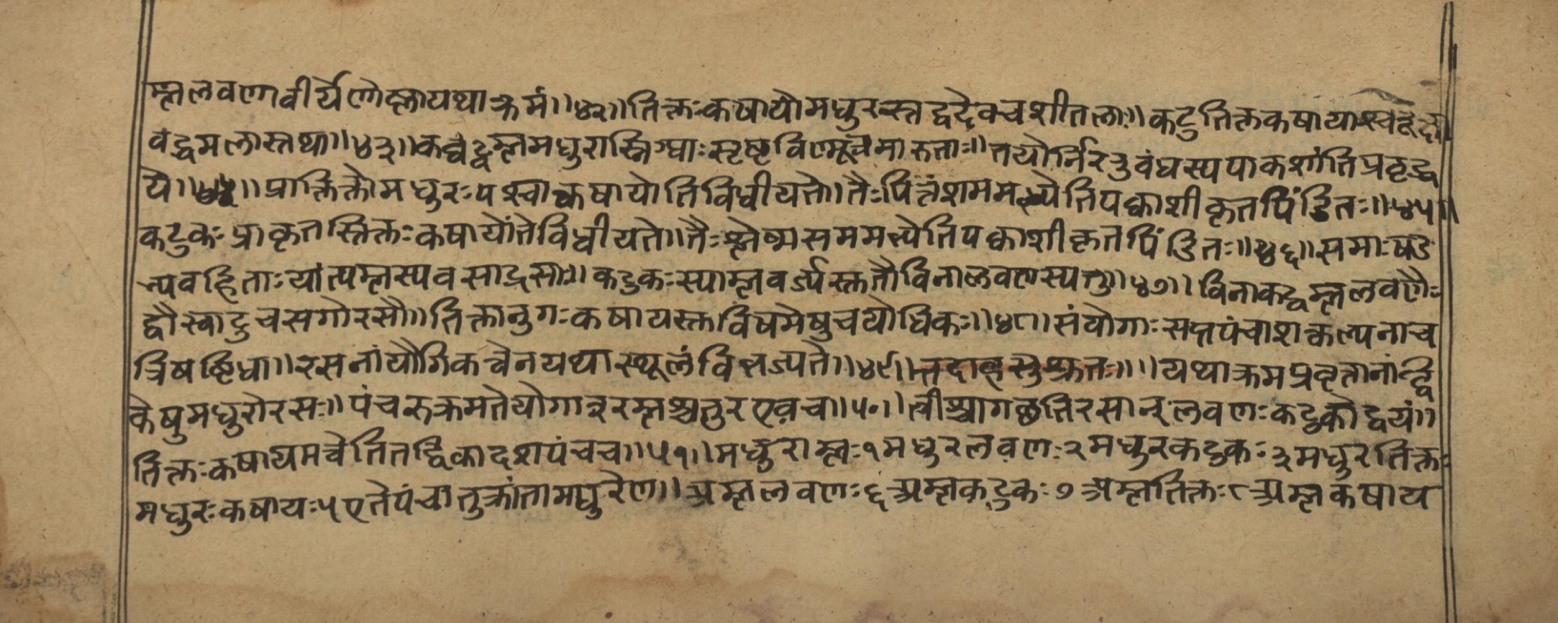 म्ललवणवीर्येणोस्मायथाक्रमं॥४२॥तिक्तःकषायोमधुरस्तद्वदेवचशीतलाः॥कटुतिक्तकषायाश्च
वंद्धमलास्तथा॥४३॥कट्वम्लमधुरास्निग्धाःसृष्टविण्मूत्रमारुताः॥तयोर्निरनुबंधस्यपाकशांतिप्रवृद्ध
ये॥४४॥प्राक्तिक्तोमधुरःपश्चात्कषायोतिविधीयते॥तैःपित्तंशममभ्येतिपक्वाशीकृतपिंडितः॥४५॥
कटुकःप्राकृतस्तिक्तःकषायोंतेविधीयते॥तैःश्लेष्मसममभ्येतिपक्वाशीकृतपिंडितः॥४६॥समाःषड
न्यवहिताःयांत्यम्लस्यवसाद्रसाः॥कटुकःस्याम्लवर्ज्यस्तुतौविनालवणस्यतु॥४७॥विनाकट्वम्ललवणैः
द्वौस्वादुचसगोरसौ॥तिक्तानुगःकषायस्तुविषमेषुचयोधिकः॥४८॥संयोगाःसप्तपंचाशत्कल्पनाच
त्रिषष्टिधा॥रसनांयौगिकत्वेनयथास्थूलंविभज्यते॥४९॥तदाहसुश्रुतः॥॥यथाक्रमप्रवृत्तानांद्वि
केषुमधुरोरसः॥पंचरुक्रमतेयोगान्नरम्लश्चतुरएवच॥५०॥त्रीश्चागछतिरसान्लवणःकटुकोद्वयं॥
तिक्तःकषायमन्वेतितद्विकादशपंचच॥५१॥मधुराम्लः१मधुरलवणः२मधुरकटुकः३मधुरतिक्तः
मधुरःकषायः५एतेपंचानुक्रांतामधुरेण॥अम्ललवणः६अम्लकटुकः७अम्लतिक्तः८अम्लकषाय